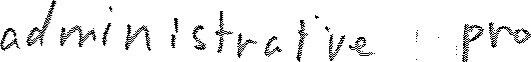 administrative pro